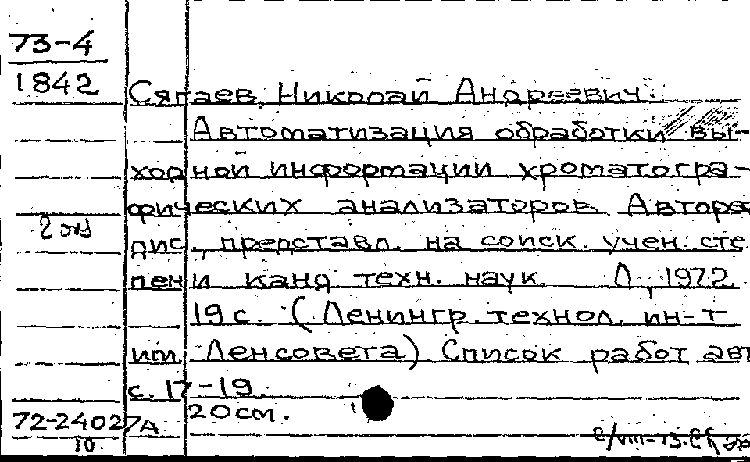 73-4
1842
Сягаев, Николай Андреевич.
Автоматизация обработки вы-
ходной информации хроматогра-
фических анализаторов. Авторе
2 экз
дис., представл. на соиск. учен. сте
пени канд. техн. наук. Л., 1972.
19 с. (Ленингр. технол. ин-т
им. Ленсовета) Список работ авт
с. 17-19.
20 см.
72-24027А
10